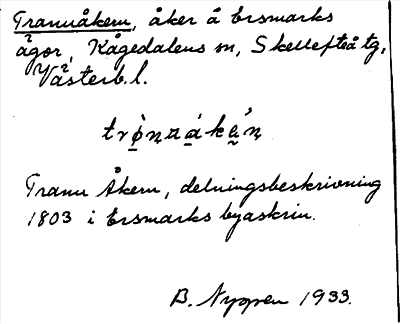 Trannåkern, åker å Ersmarks
ägor, Kågedalens sn, Skellefteå tg,
Västerb. l.
Trann Åkern, delningsbeskrivning
1803 i Ersmarks byaskrin.
B. Nygren 1933.